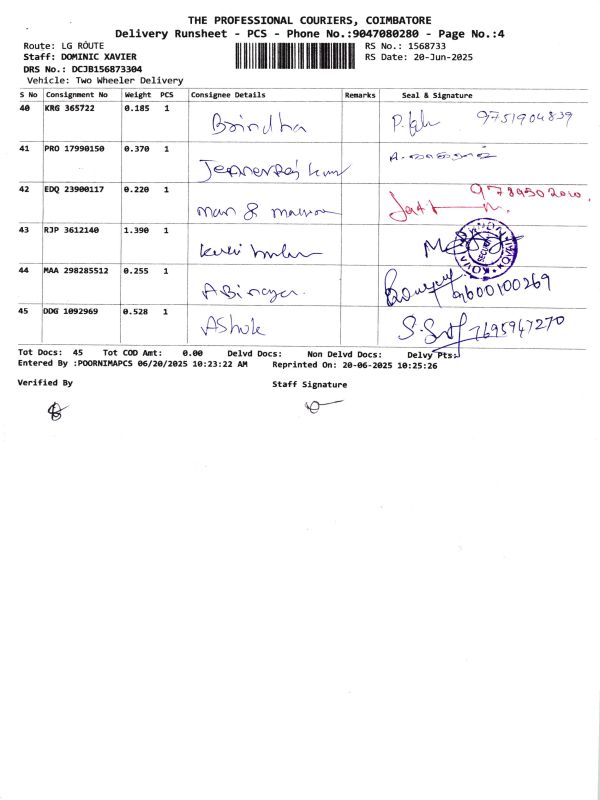 THE PROFESSIONAL COURIERS, COIMBATORE
Delivery Runsheet - PCS - Phone No.:9047080280 - Page No.:4
Route: LG ROUTE RS No.: 1568733
Staff: DOMINIC XAVIER RS Date: 20-Jun-2025
DRS No.: DCJB156873304
Vehicle: Two Wheeler Delivery
S No Consignment No Weight PCS Consignee Details Remarks Seal & Signature
40 KRG 365722 0.185 1 Brindha 9751904839
41 PRO 17990150 0.370 1
42 EDQ 23900117 0.220 1 9789502010
43 RJP 3612140 1.390 1
44 MAA 298285512 0.255 1 Abinaya 9600100269
45 DDG 1092969 0.528 1 Ashok 7695947270
Tot Docs: 45 Tot COD Amt: 0.00 Delvd Docs: Non Delvd Docs: Delvy Pts:
Entered By :POORNIMAPCS 06/20/2025 10:23:22 AM Reprinted On: 20-06-2025 10:25:26
Verified By Staff Signature